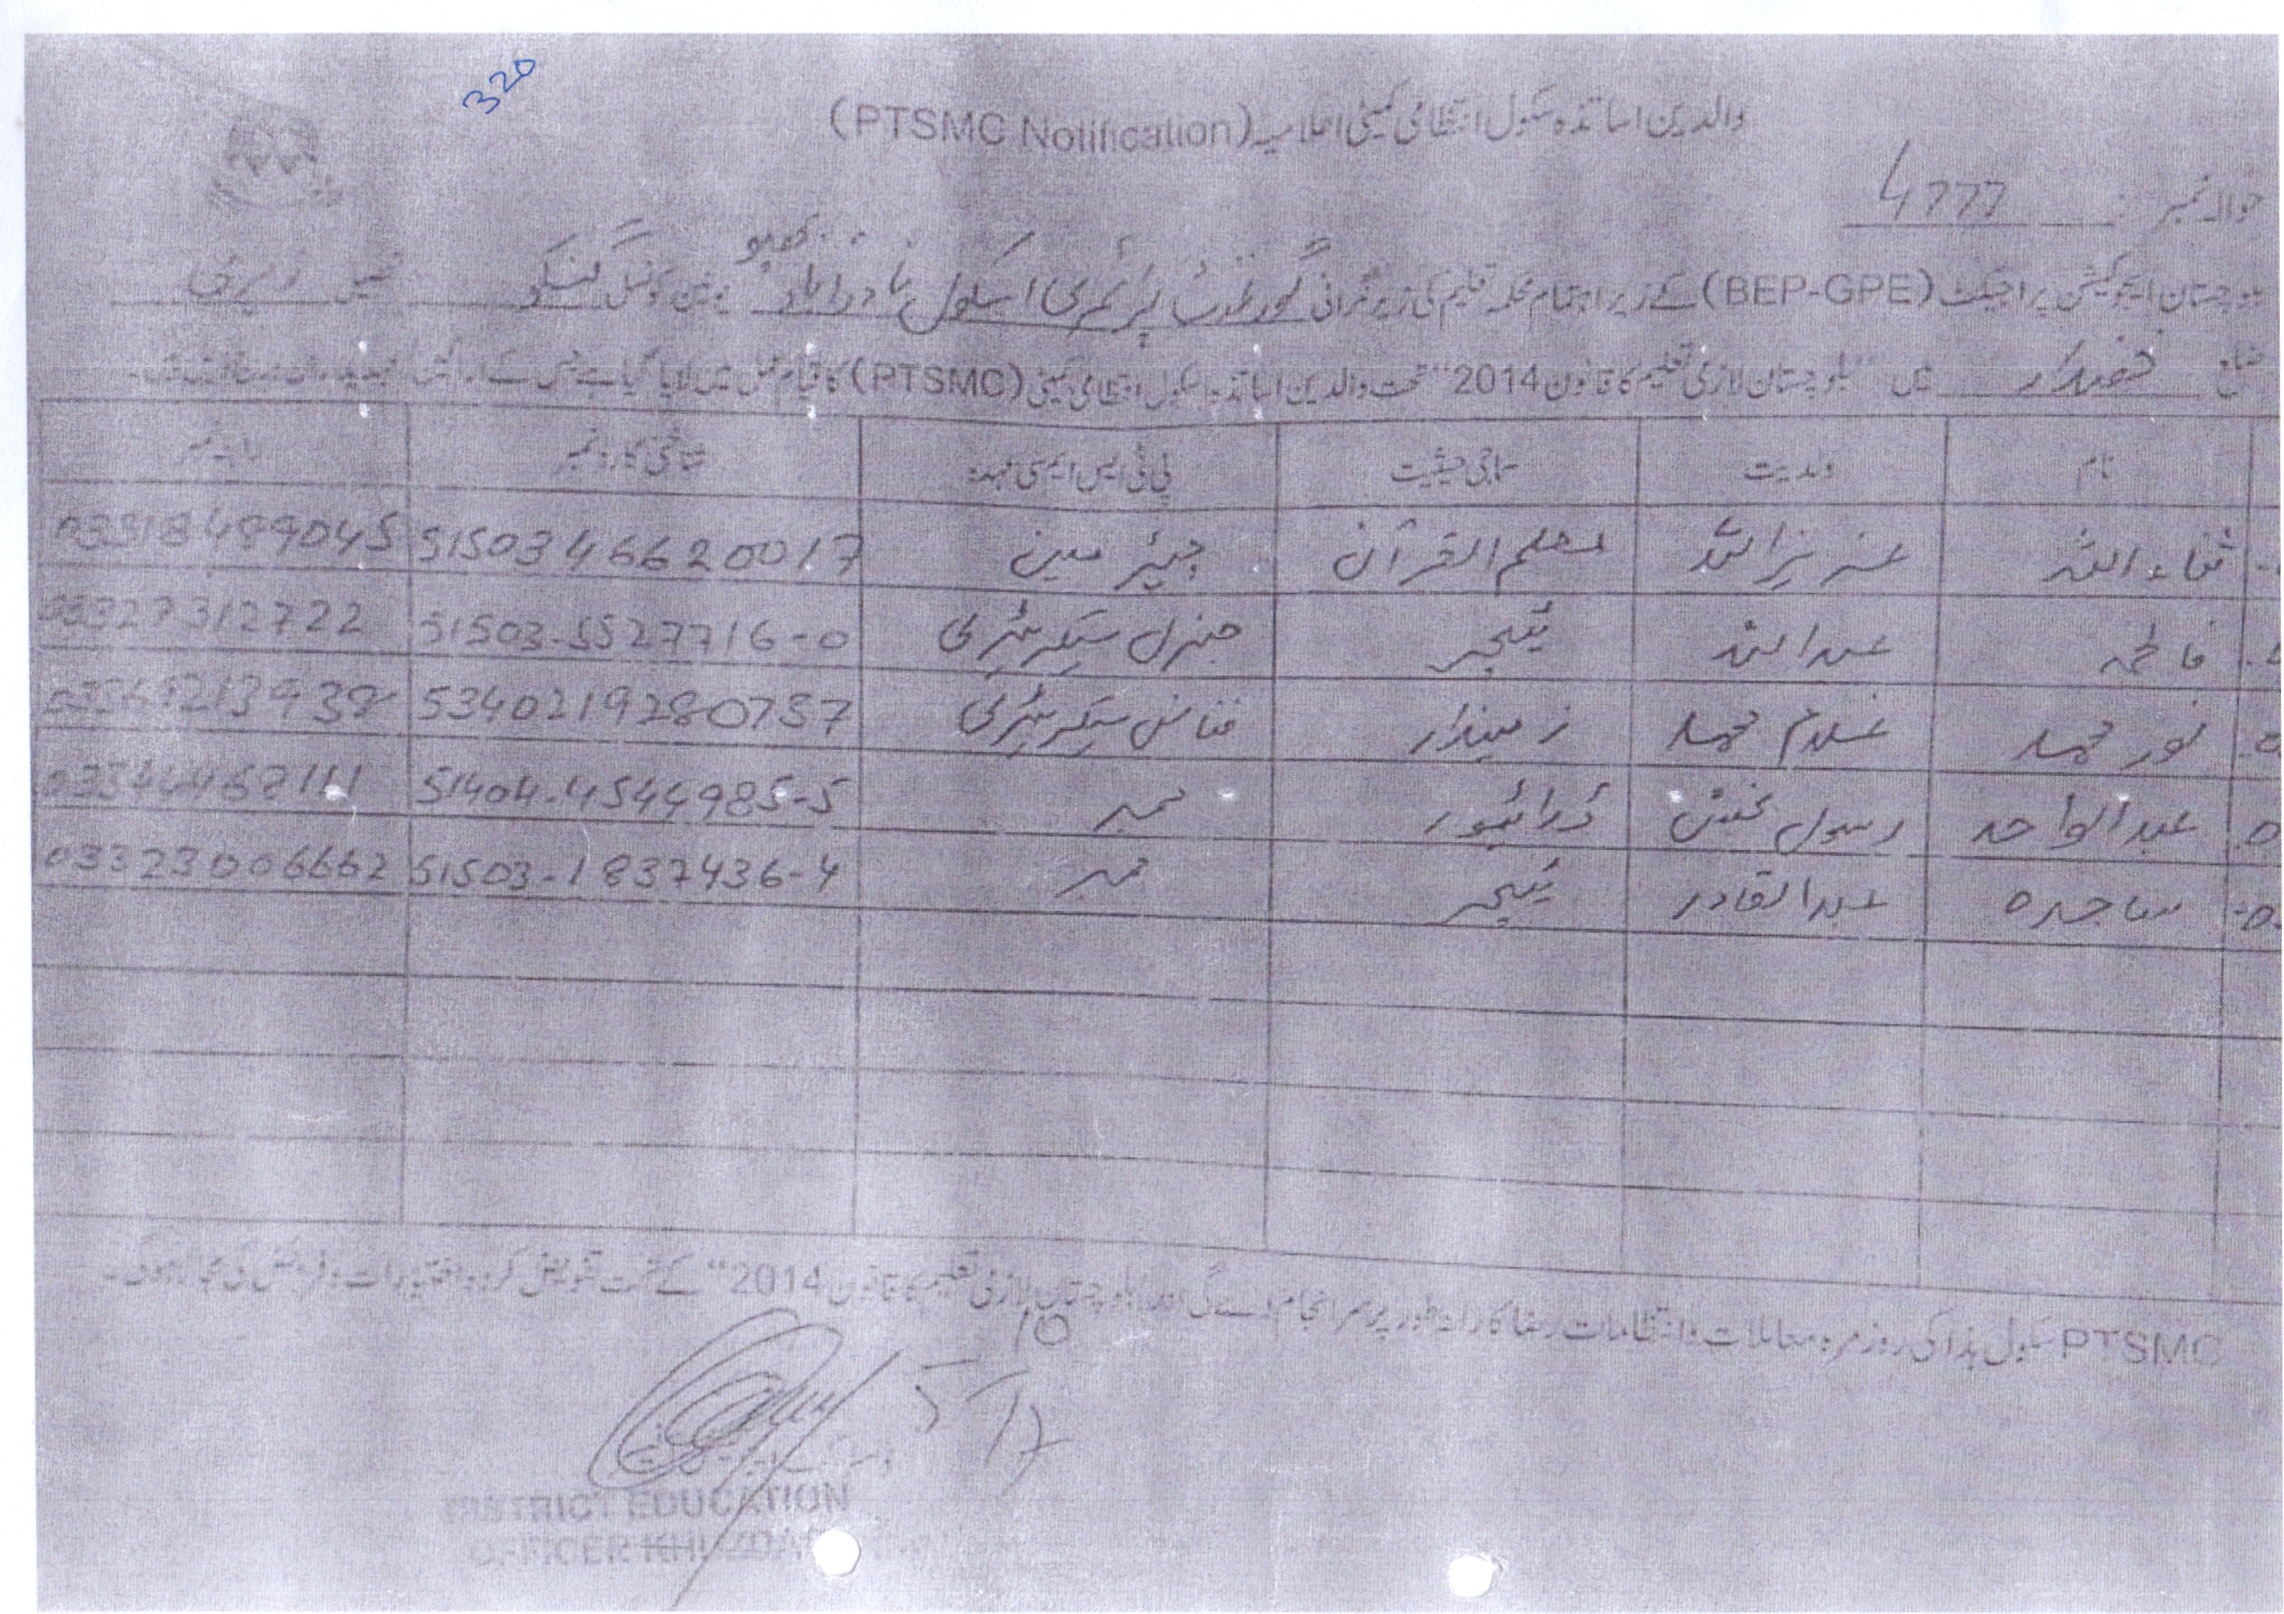 320
والدین اساتذہ سکول انتظامی کمیٹی اعلامیہ (PTSMC Notification)
حوالہ نمبر : 4777
بلوچستان ایجوکیشن پراجیکٹ (BEP-GPE) کے زیر اہتمام محکمہ تعلیم کی زیر نگرانی گورنمنٹ پرائمری اسکول نادرآباد یونین کونسل تحصیل زہری
ضلع خضدار میں "بلوچستان لازمی تعلیم کا قانون 2014" تحت والدین اساتذہ اسکول انتظامی کمیٹی (PTSMC) کا قیام عمل میں لایا گیا ہے جس کے
نام ولدیت سماجی حیثیت پی ٹی ایس ایم سی عہدہ شناختی کارڈ نمبر رابطہ نمبر
ثناء اللہ عزیز اللہ معلم القرآن چیئرمین 5150346620017 03318499045
فاطمہ عبداللہ ٹیچر جنرل سیکریٹری 51503-5527716-0 03327312722
نور محمد غلام محمد زمیندار فنانس سیکریٹری 5340219280757
عبدالواحد رسول بخش ڈرائیور ممبر 51404-4544985-5
ساجدہ عبدالقادر ٹیچر ممبر 51503-1837436-4 03323006662
PTSMC سکول ہذا کی روزمرہ معاملات و انتظامات رضاکارانہ طور پر سرانجام دے گی اور بلوچستان لازمی تعلیم کا قانون 2014" کے تحت تفویض کردہ اختیارات و فرائض کی مجاز ہوگی۔
10
5
17
DISTRICT EDUCATION
OFFICER KHUZDAR